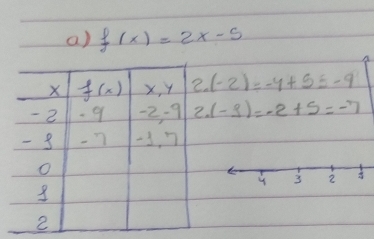 a) f(x) = 2x - 5
x f(x) x,y 2.(-2)=-4+5=-9
-2 -9 -2,-9 2.(-1)=-2+5=-7
-1 -7 -1,7
0
1
2
4 3 2 1